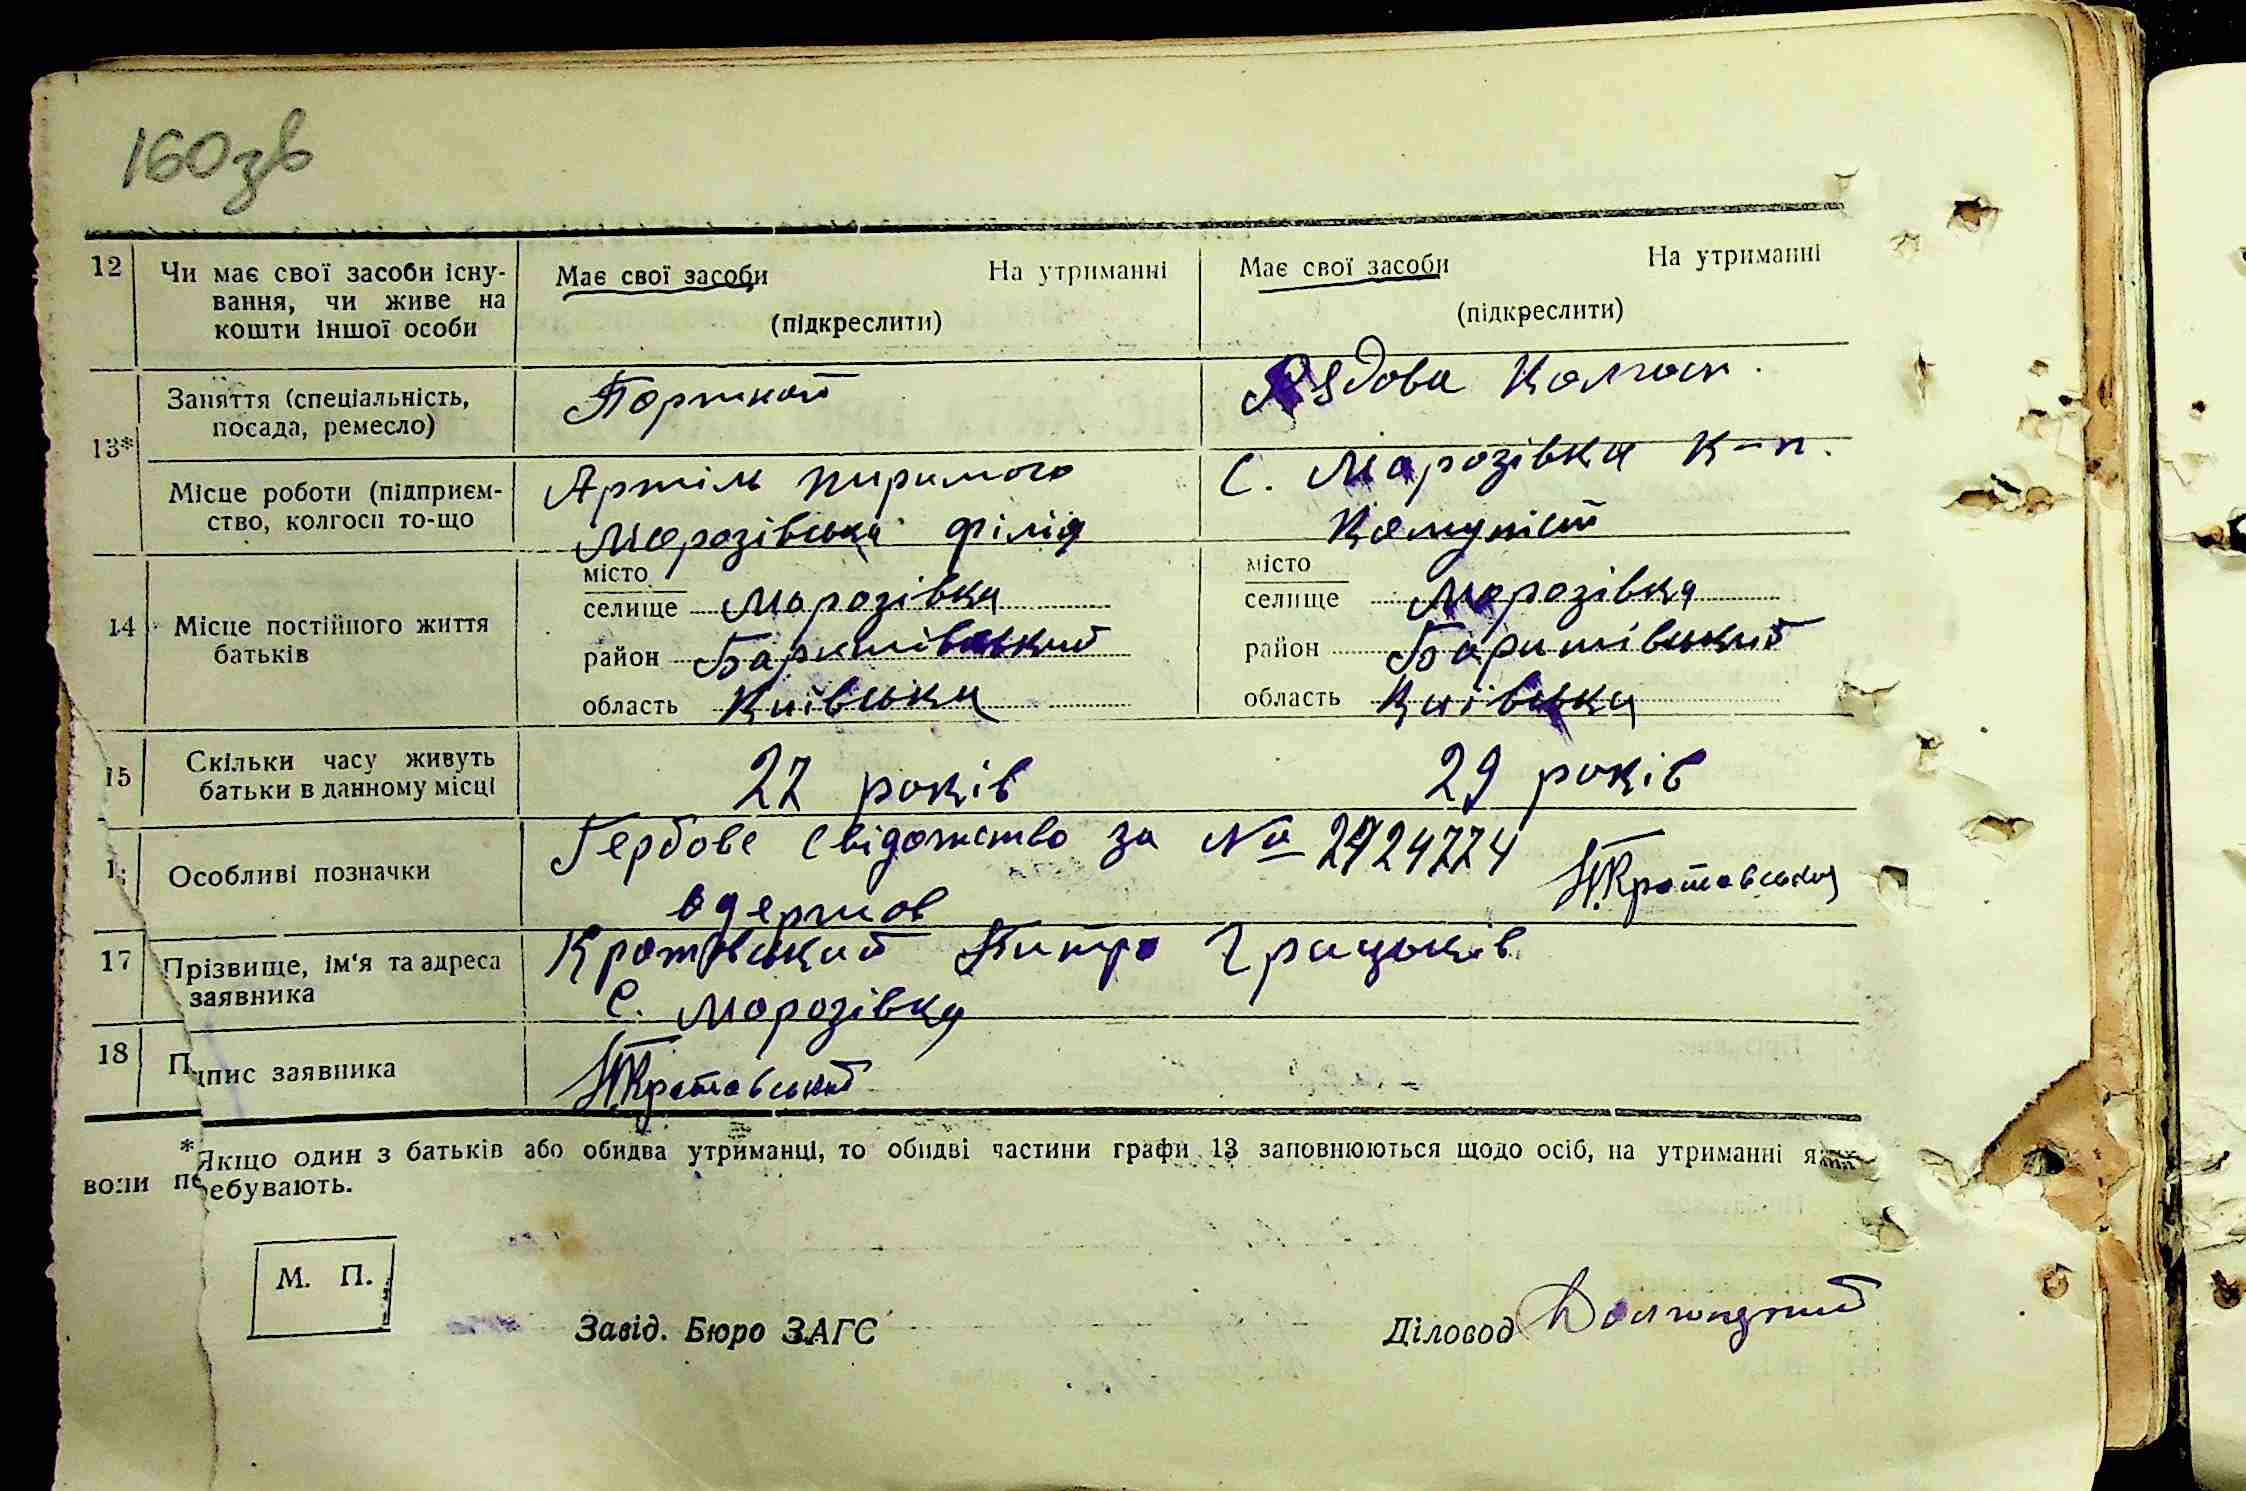 160зв
12 Чи має свої засоби існу-
вання, чи живе на
кошти іншої особи
Має свої засоби На утриманні
(підкреслити)
Має свої засоби На утриманні
(підкреслити)
13*
Заняття (спеціальність,
посада, ремесло)
Портной
Рядова Колгосп.
Місце роботи (підприєм-
ство, колгосп то-що
Артіль
Морозівська філія
С. Морозівка к-п.
Комуніст
14 Місце постійного життя
батьків
місто
селище Морозівка
район Баришівський
область Київська
місто
селище Морозівка
район Баришівський
область Київська
15 Скільки часу живуть
батьки в данному місці
27 років
29 років
Особливі позначки
Гербове свідотство за №
одержав
17 Прізвище, ім'я та адреса
заявника
Кротовський
С. Морозівка
18 Підпис заявника
Кротовський
*Якщо один з батьків або обидва утриманці, то обидві частини графи 13 заповнюються щодо осіб, на утриманні яких
вони перебувають.
М. П.
Завід. Бюро ЗАГС
Діловод